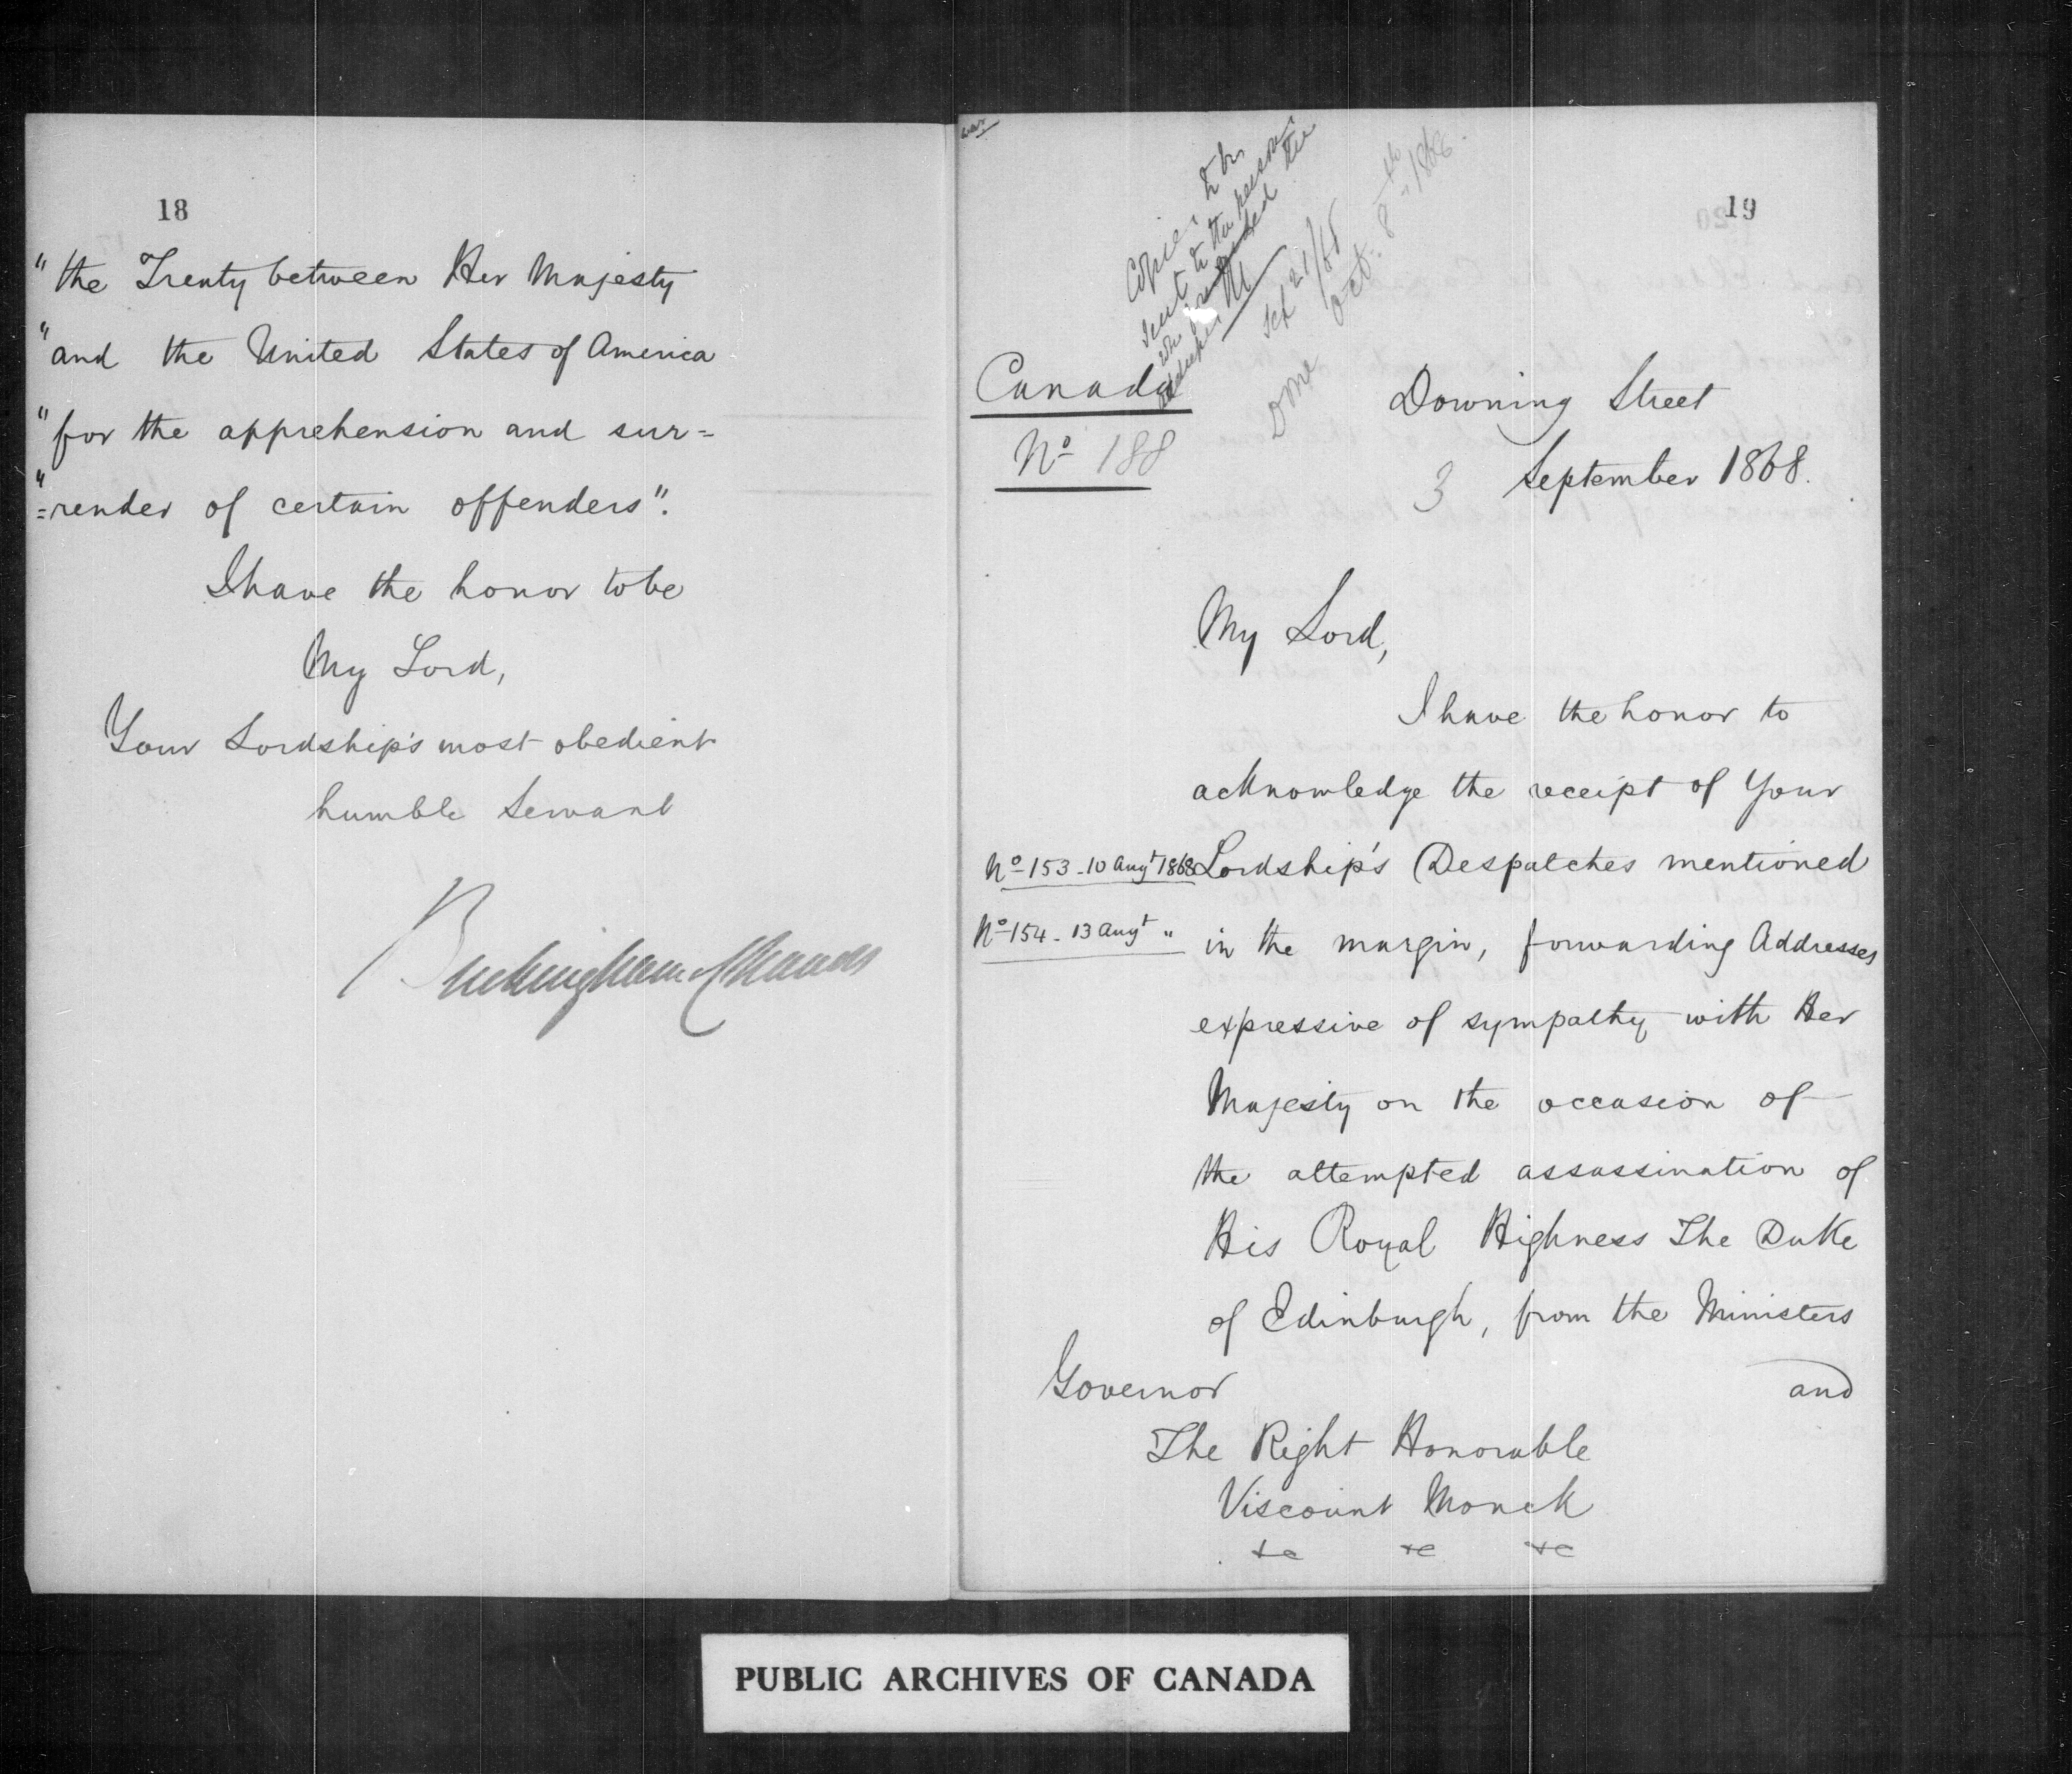 18
"the Treaty between Her Majesty
"and the United States of America
"for the apprehension and sur=
"=render of certain offenders".
I have the honor to be
My Lord,
Your Lordship's most obedient
humble Servant
Buckingham & Chandos
19
Copies to be
sent to the persons
who presented the
addresses M
Sep 21/68
Done Oct: 8th 1868.
Canada
No 188
Downing Street
3 September 1868.
My Lord,
I have the honor to
acknowledge the receipt of Your
No 153 - 10 Augt 1868 Lordship's Despatches mentioned
No 154 - 13 Augt " in the margin, forwarding Addresses
expressive of sympathy with Her
Majesty on the occasion of
the attempted assassination of
His Royal Highness The Duke
of Edinburgh, from the Ministers
and
Governor
The Right Honorable
Viscount Monck
&c &c &c
PUBLIC ARCHIVES OF CANADA